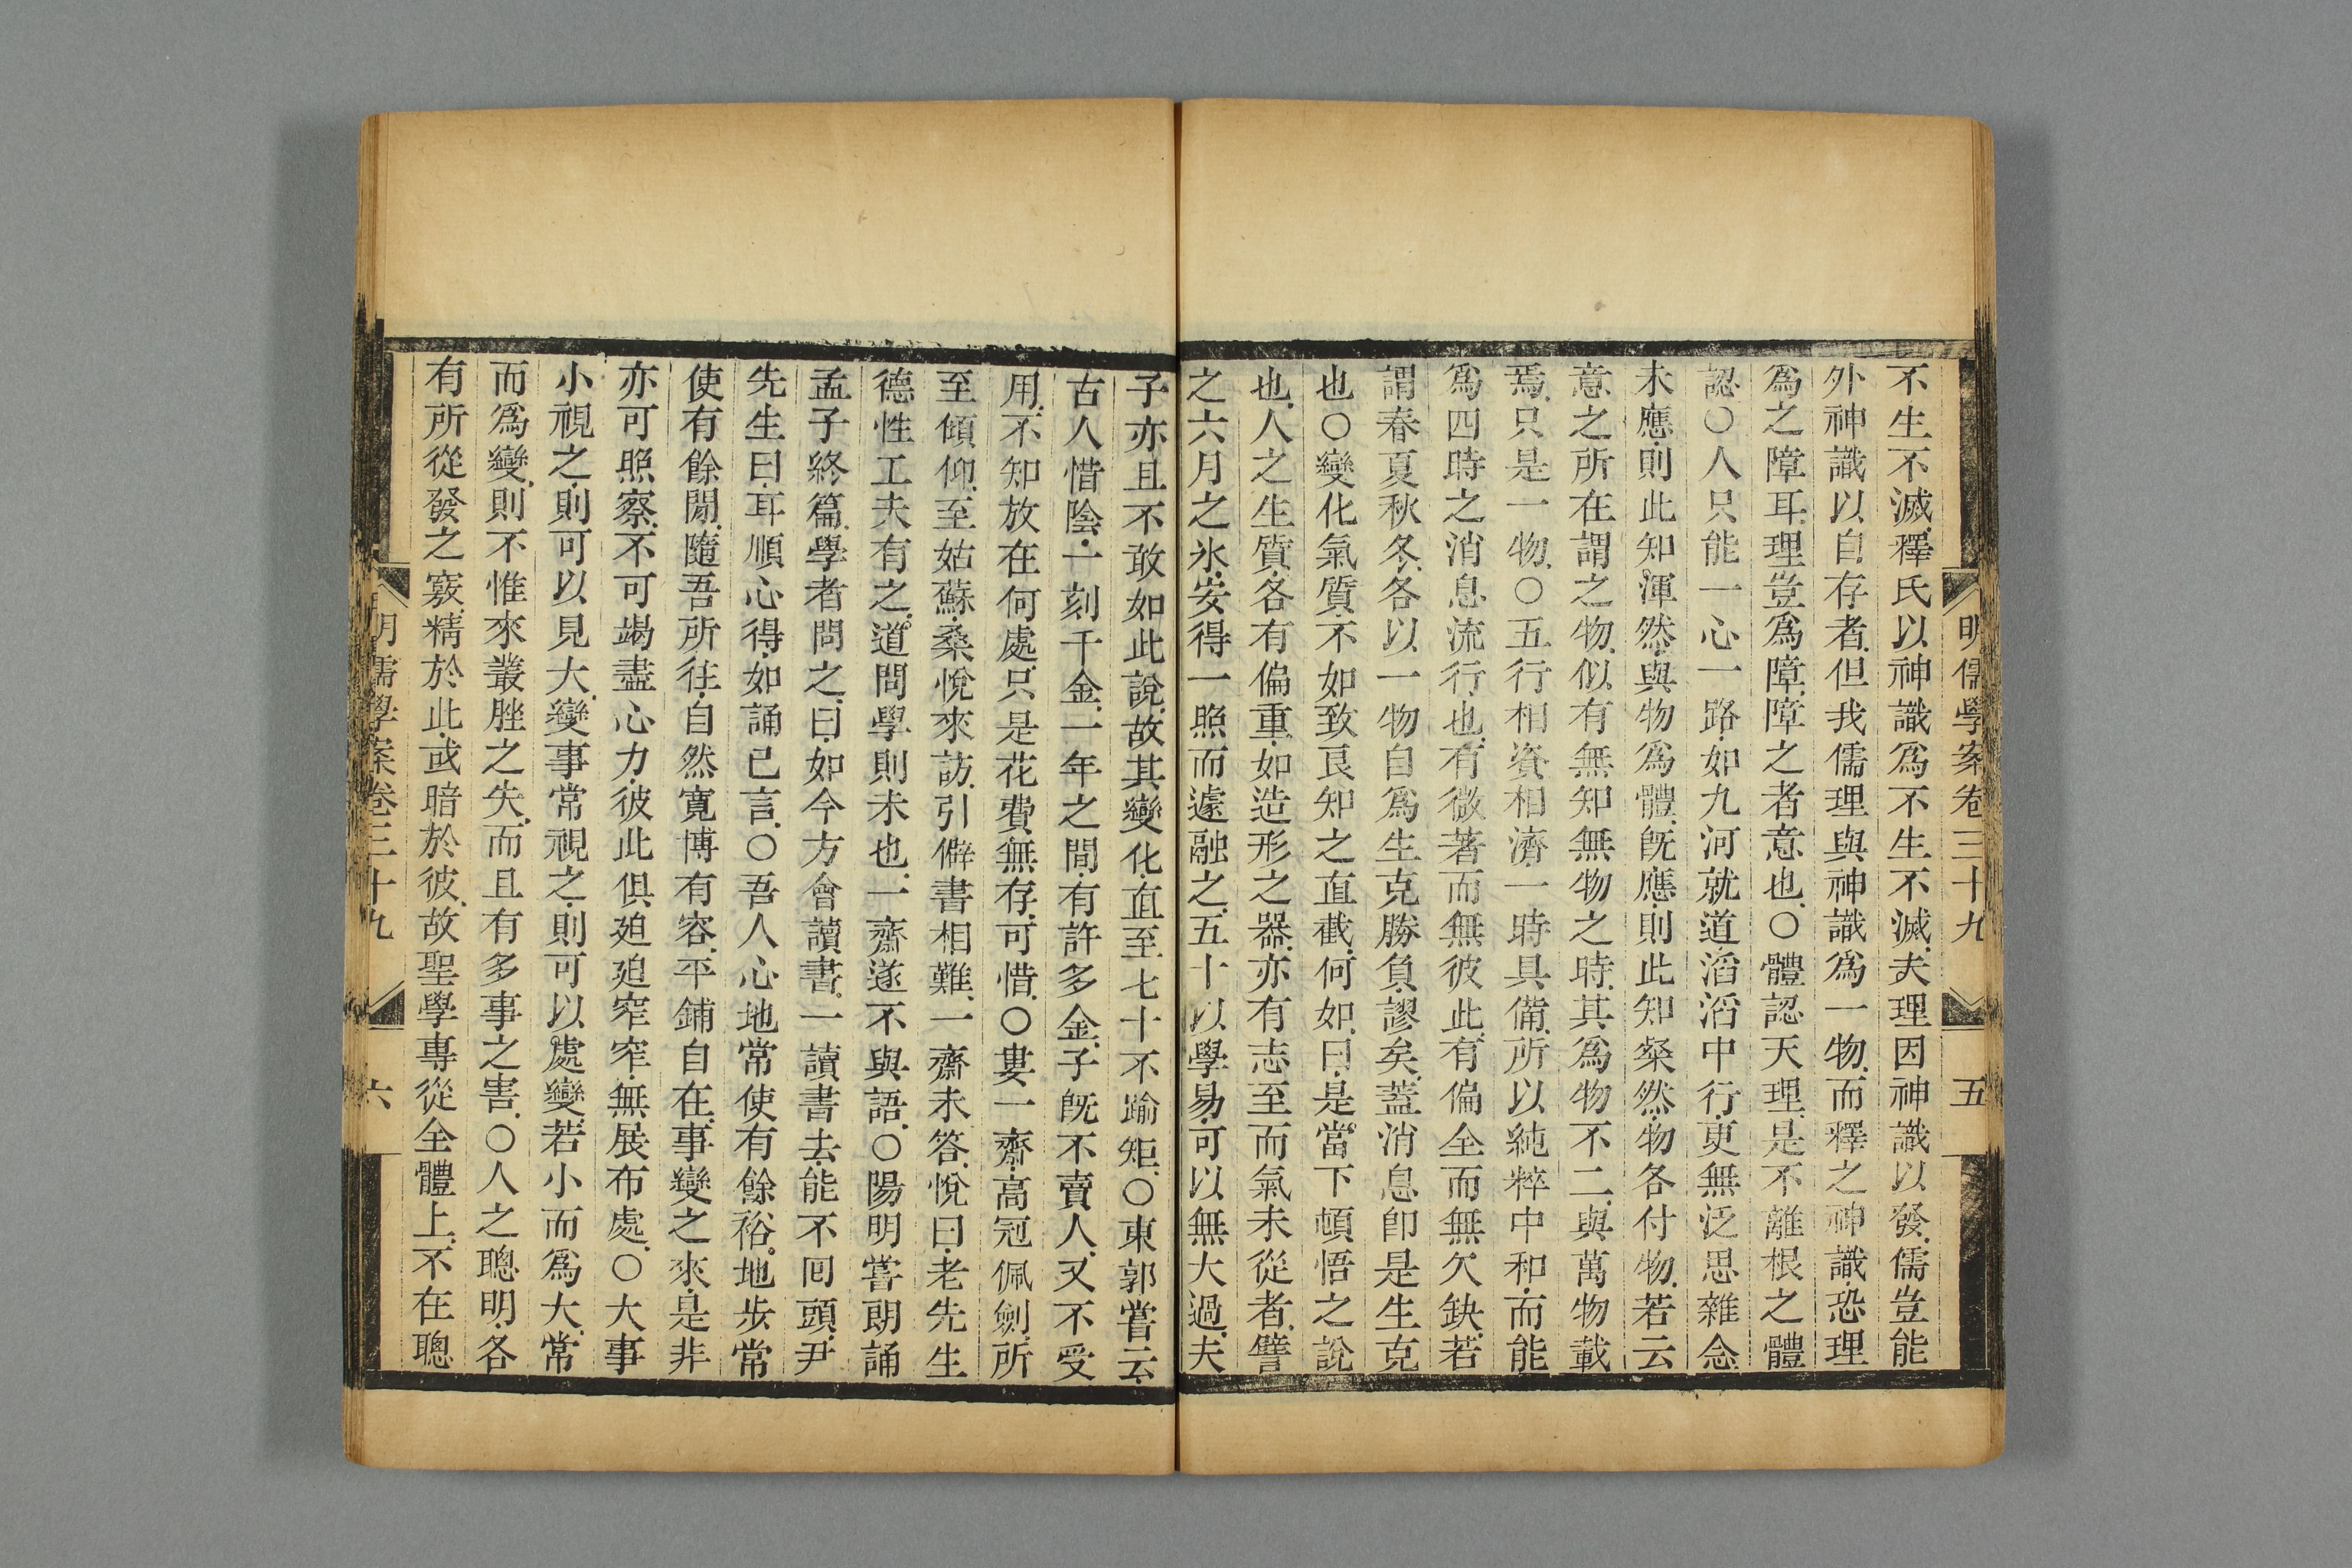 明儒學案卷三十九 五
不生不滅釋氏以神識爲不生不滅夫理因神識以發儒豈能
外神識以自存者但我儒理與神識爲一物而釋之神識恐理
爲之障耳理豈爲障障之者意也○體認天理是不離根之體
認○人只能一心一路如九河就道滔滔中行更無泛思雜念
未應則此知渾然與物爲體旣應則此知粲然物各付物若云
意之所在謂之物似有無知無物之時其爲物不二與萬物載
焉只是一物○五行相資相濟一時具備所以純粹中和而能
爲四時之消息流行也有微著而無彼此有偏全而無欠缺若
謂春夏秋冬各以一物自爲生克勝負謬矣蓋消息卽是生克
也○變化氣質不如致良知之直截何如曰是當下頓悟之說
也人之生質各有偏重如造形之器亦有志至而氣未從者譬
之六月之氷安得一照而遽融之五十以學易可以無大過夫
子亦且不敢如此說故其變化直至七十不踰矩○東郭嘗云
古人惜陰一刻千金一年之間有許多金子旣不賣人又不受
用不知放在何處只是花費無存可惜○婁一齋高冠佩劍所
至傾仰至姑蘇桑悅來訪引僻書相難一齋未答悅曰老先生
德性工夫有之道問學則未也一齋遂不與語○陽明嘗朗誦
孟子終篇學者問之曰如今方會讀書一讀書去能不囘頭尹
先生曰耳順心得如誦己言○吾人心地常使有餘裕地步常
使有餘閒隨吾所往自然寬博有容平鋪自在事變之來是非
亦可照察不可竭盡心力彼此俱廹廹窄窄無展布處○大事
小視之則可以見大變事常視之則可以處變若小而爲大常
而爲變則不惟來叢脞之失而且有多事之害○人之聰明各
有所從發之竅精於此或暗於彼故聖學專從全體上不在聰
明儒學案卷三十九 六